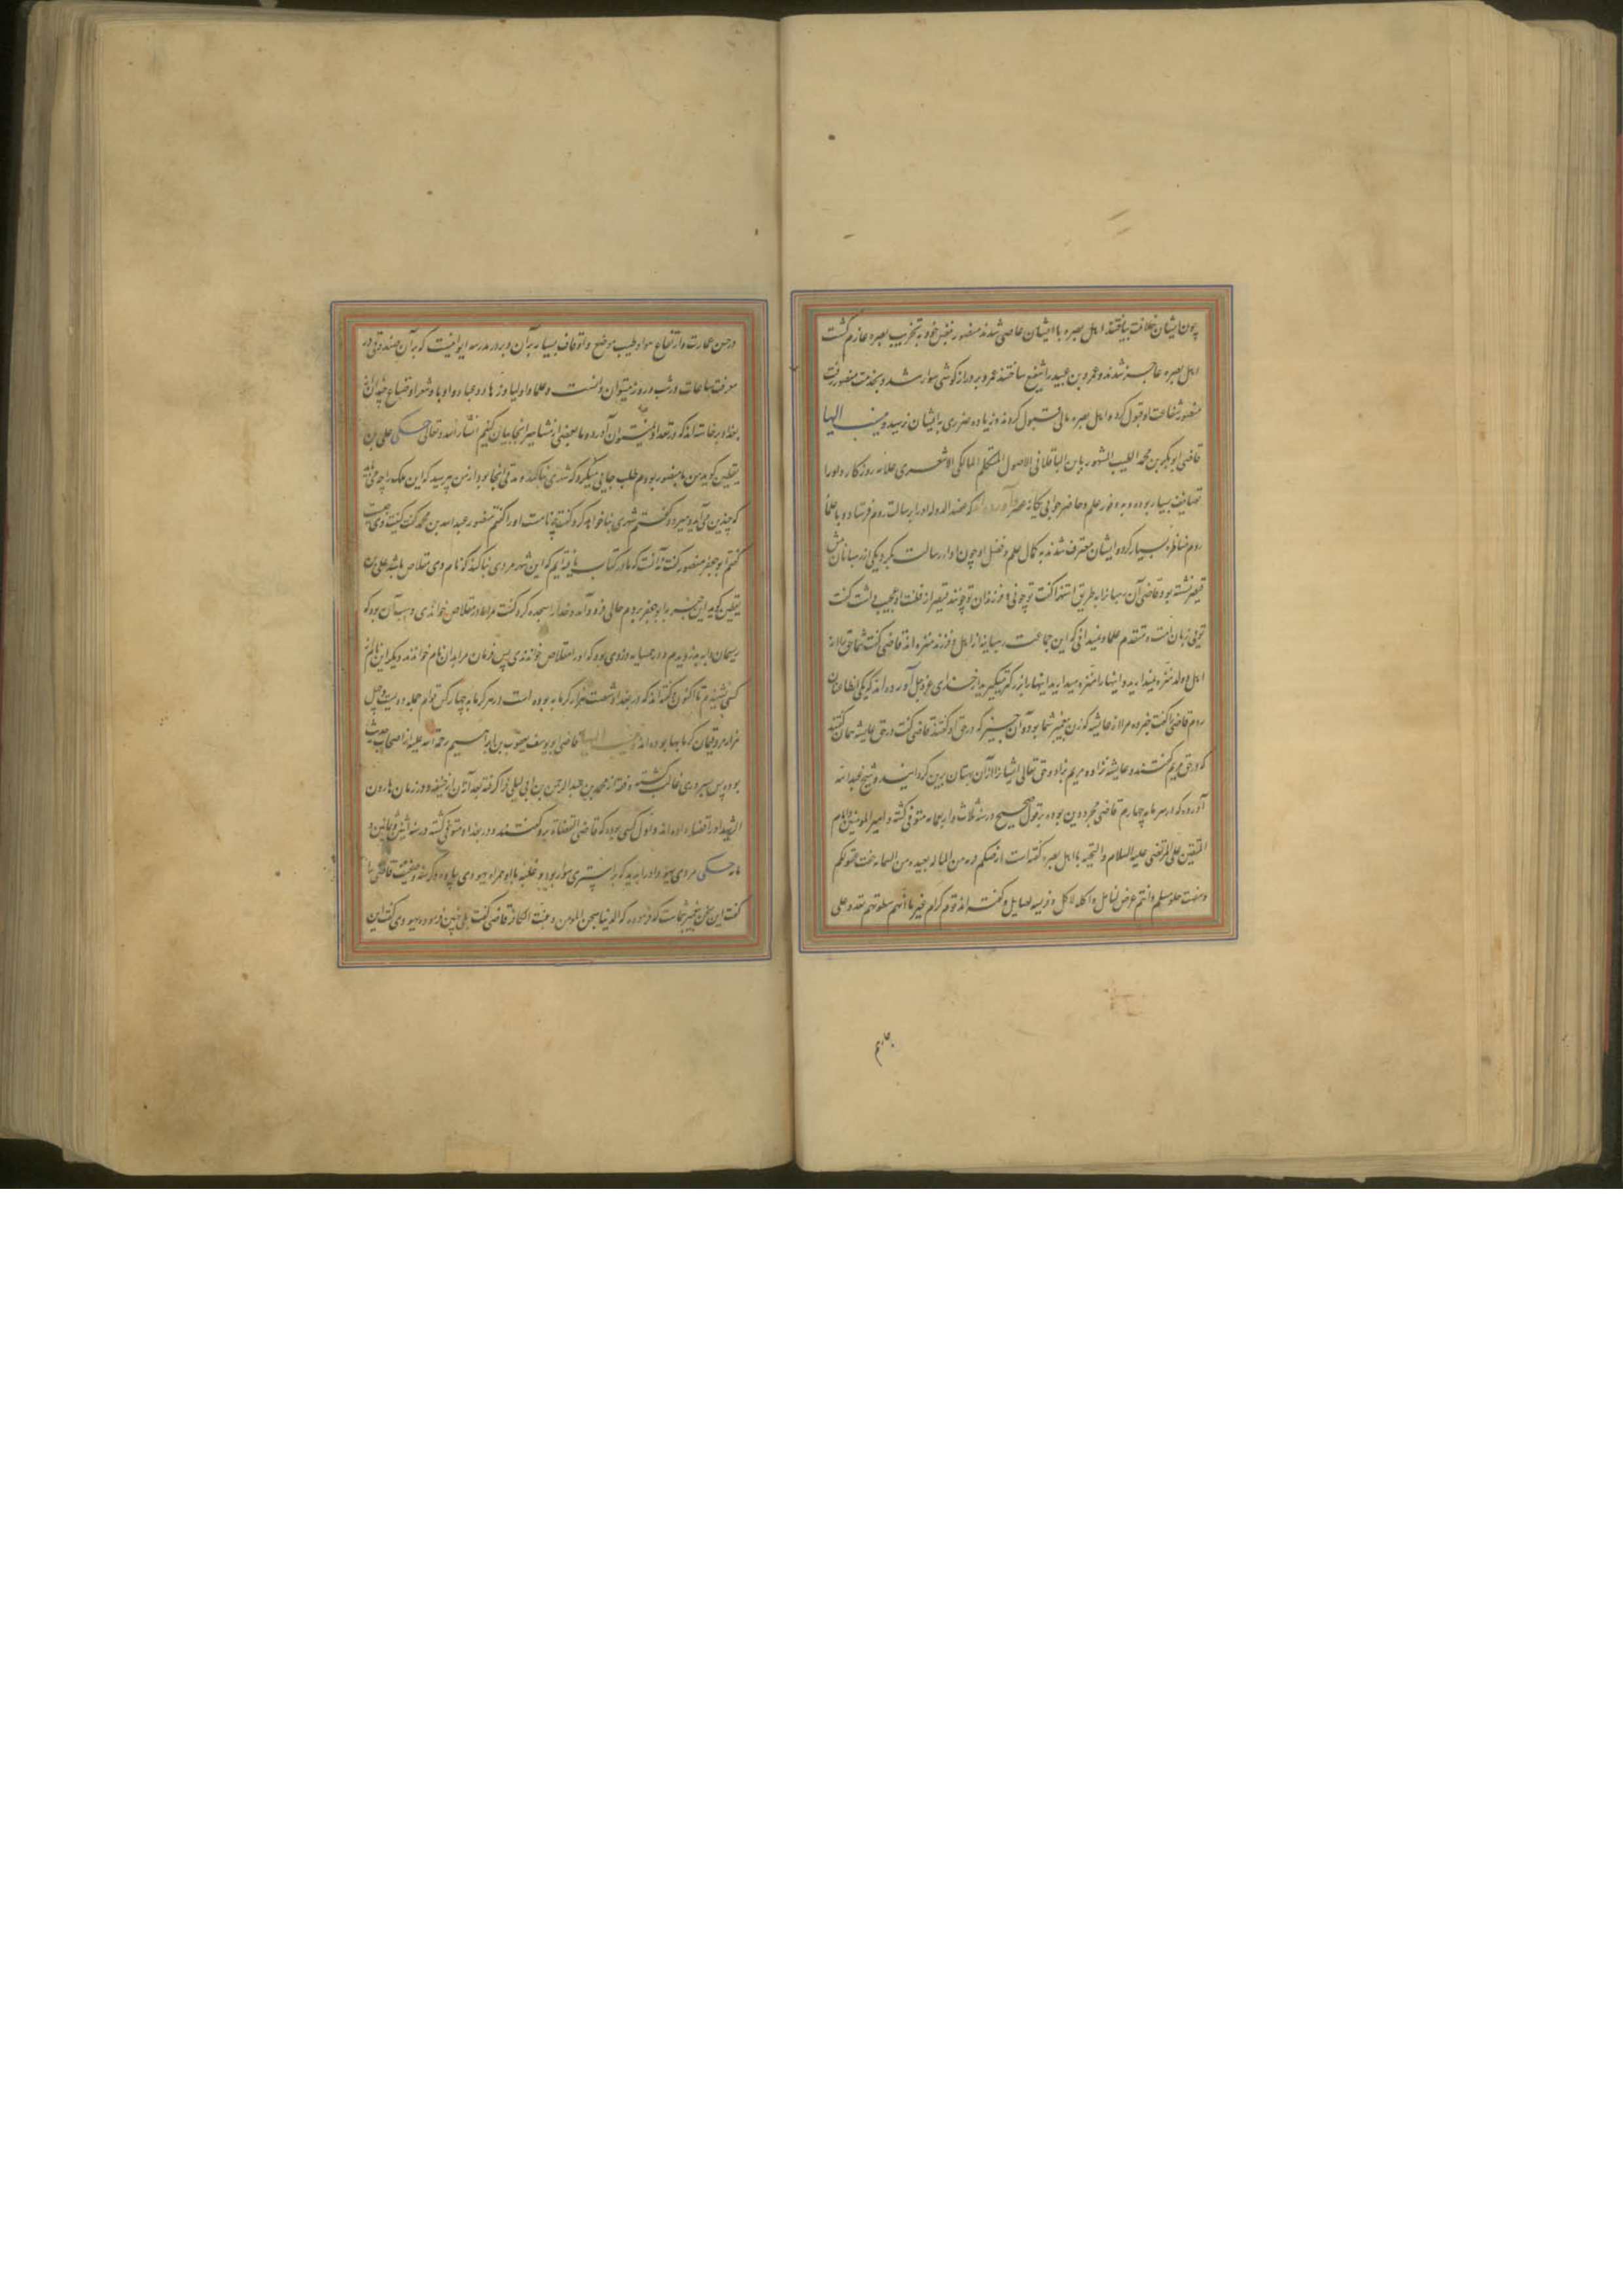 چون ایشان خلافت یافتند اهل بصره با ایشان عاصی شدند منصور بنفس خود به تخریب بصره عازم گشت
اهل بصره عاجز شدند و عمرو بن عبید را شفیع ساختند عمرو بر دراز گوشی سوار شد و بخدمت منصور رفت
منصور شفاعت او قبول کرد و اهل بصره مالی قبول کردند و زیاده ضرری به ایشان نرسید و ینسب الیها
قاضی ابوبکر بن محمد الطیب المشهور بابن الباقلانی الاصولی المتکلم المالکی الاشعری علامه روزگار و او را
تصانیف بسیار بوده و به وفور علم و حاضر جوابی یگانه عصر آورده‌اند که عضد الدوله او را برسالت روم فرستاد و با علماء
روم مناظره بسیار کرده و ایشان معترف شدند به کمال علم و فضل او چون ادا رسالت بکرد یکی از رهبانان پیش
قیصر نشسته بود قاضی آن رهبانرا به طریق استهزا گفت تو چونی و فرزندان تو چونند قیصر از
تویی زبان امت و متقدم علما و نمیدانی که این جماعت رهبانیه از اهل و فرزند منزه اند قاضی گفت شما حق را از
اهل و ولد منزه نمیدارید و اینها را منزه میدارید اینها را بزرگتر میگیرید از خدای عز و جل آورده اند که یکی
روم قاضی را گفت خبر ده مرا از عایشه که زن پیغمبر شما بود و آن چیز که در حق او گفتند قاضی گفت در حق عایشه همان گفتند
که در حق مریم گفتند و عایشه نزاد و مریم بزاد و حق تعالی ایشانرا از آن بهتان بری گردانید و شیخ عبدالله
آورده که در سر مایه چهارم قاضی مجدد دین بوده بر قول صحیح در سنه ثلاث و اربعمایه متوفی گشته و امیر المومنین و امام
المتقین علی المرتضی علیه السلام و التحیه با اهل بصره گفته است ارضکم قریبه من الماء بعیده من السماء خفت عقولکم
و سفهت حلومکم و انتم غرض لنابل و اکله لاکل و فریسه لصایل و گفته اند قوم کرام غیر ما انهم
و حسن عمارت و ارتفاع هوا و طیب موضع و اوقاف بسیار بر آن و بر در مدرسه ایوانیست که بر آن صندوقی در
معرفت ساعات و شب و روز میتوان دانست و علما و اولیا و زهاد و عباد و ادبا و شعرا و صناع چندان از
بغداد برخاسته‌اند که در تعداد نمیتوان آورد و ما بعضی از مشاهیر اینجا بیان کنیم انشاء الله تعالی حکی علی بن
یقطین گوید من با منصور بودم طلب جایی میکرد که شهری بنا کند و مدتی آنجا بود از من پرسید که این ملک را چه میگویند
که چندین می‌آید و میرود گفتم شهری بنا خواهد کرد گفت چه نامست او را گفتم منصور عبد الله بن محمد گفت کنیت وی چیست
گفتم ابو جعفر منصور گفت آنست که ما در کتاب یافته‌ایم که این شهر مردی بنا کند که نام وی مقلاص باشد علی بن
یقطین گوید این خبر را به ابو جعفر بردم حالی فرود آمد و خدا را سجده کرد گفت مرا مادر مقلاص خواندی و سبب آن بود که
ریسمان دایه بدزدیدم و در همسایه دزدی بود که او را مقلاص خواندندی پس مرا بدان نام خواندند و دیگر این نام از
کسی نشنیدم تا اکنون و گفته‌اند که در بغداد شصت هزار گرمابه بوده است در هر گرمابه چهار کس قوام جمله دویست و چهل
هزار مرد قیمان گرمابها بوده‌اند و ینسب الیها قاضی ابو یوسف یعقوب بن ابراهیم رحمة الله علیه از اصحاب حدیث
بود پس بر وی غالب گشته و فقه از محمد بن عبد الرحمن بن ابی لیلی فرا گرفته بعد از آن از ابو حنیفه و در زمان هارون
الرشید او را قضا داده‌اند و اول کسی بوده که قاضی القضاة بدو گفتند و در بغداد متوفی گشته در سنه اثنی و ثمانین و
مایه حکی مردی یهود او را بدید که بر استری سوار بود و غلبه با او همراه یهودی پیاده و گرسنه و ضعیف قاضی را
گفت این سخن پیغمبر شماست که فرموده که الدنیا سجن المومن و جنة الکافر قاضی گفت بلی چنین فرموده یهودی گفت این